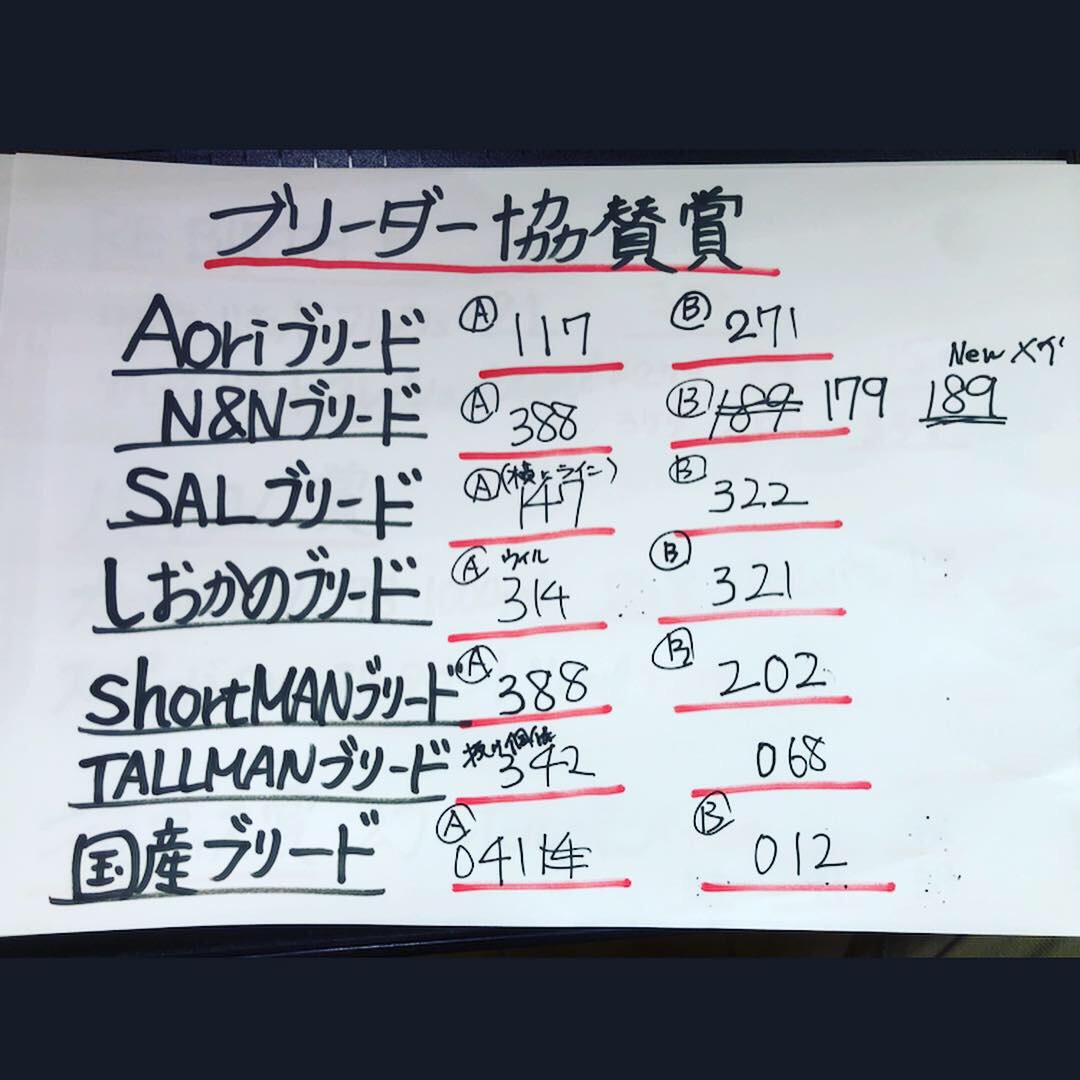 ブリーダー協賛賞
Aoriブリード Ⓐ 117 Ⓑ 271
New メゲ
N&Nブリード Ⓐ 388 Ⓑ 189 179 189
SALブリード Ⓐ 147 Ⓑ 322
しおかのブリード Ⓐ ウィル 314 Ⓑ 321
ShortMANブリード Ⓐ 388 Ⓑ 202
TALLMANブリード 342 068
国産ブリード Ⓐ 041 Ⓑ 012